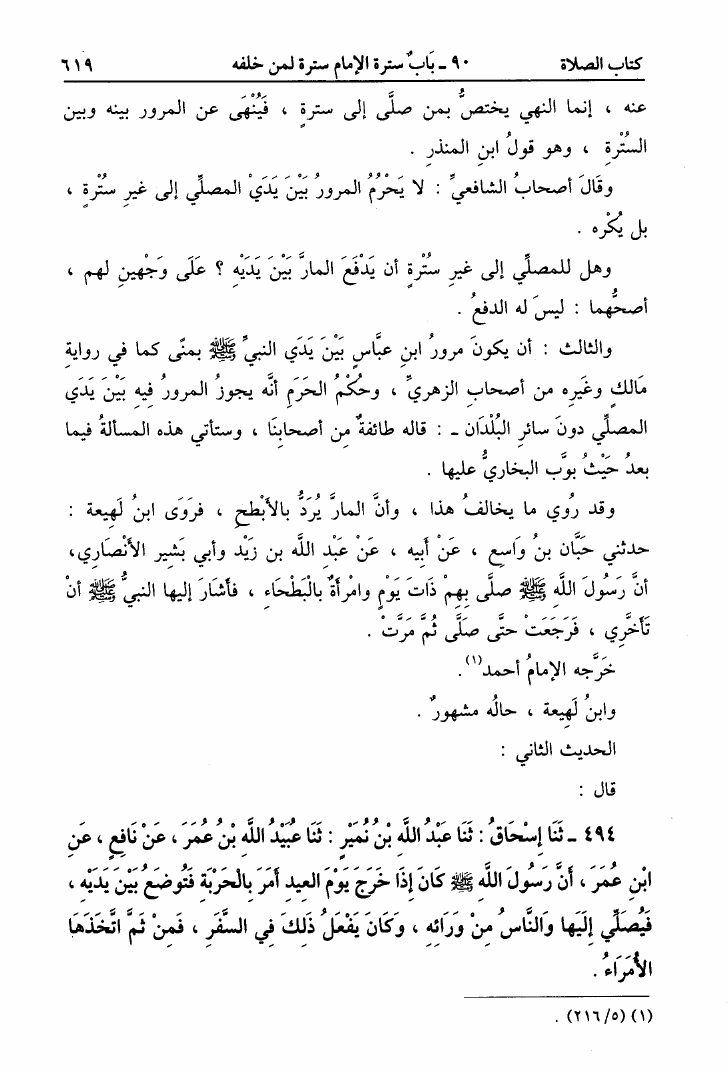 كتاب الصلاة ٩٠ ـ بَابٌ سترة الإمام سترة لمن خلفه ٦١٩
عنه ، إنما النهي يختصُّ بمن صلَّى إلى سترةٍ ، فَيُنْهَى عن المرور بينه وبين
السُّتْرةِ ، وهو قولُ ابنِ المنذرِ .
وقَالَ أصحابُ الشافعيِّ : لا يَحْرُمُ المرورُ بَيْنَ يَدَيْ المصلِّي إلى غيرِ سُتْرةٍ ،
بل يُكْره .
وهل للمصلِّي إلى غيرِ سُتْرةٍ أن يَدْفَعَ المارَّ بَيْنَ يَدَيْهِ ؟ عَلَى وَجْهينِ لهم ،
أصحُّهما : ليسَ له الدفعُ .
والثالث : أن يكونَ مرورُ ابنِ عبَّاسٍ بَيْنَ يَدَي النبيِّ ﷺ بمنًى كما في روايةِ
مَالكٍ وغَيرِه من أصحابِ الزهريِّ ، وحُكْمُ الحَرَمِ أنَّه يجوزُ المرورُ فيهِ بَيْنَ يَدَي
المصلِّي دونَ سائرِ البُلْدَان ـ : قاله طائفةٌ مِن أصحابِنَا ، وستأتي هذه المسألةُ فيما
بعدُ حَيْثُ بوَّب البخاريُّ عليها .
وقد رُوي ما يخالفُ هذا ، وأنَّ المارَّ يُرَدُّ بالأبْطحِ ، فروَى ابنُ لَهِيعة :
حدثني حَبَّان بنُ وَاسِعٍ ، عَنْ أبيه ، عَنْ عَبْدِ اللَّه بن زَيْد وأبي بَشيرٍ الأنْصَاري،
أنَّ رَسُولَ اللَّهِ ﷺ صلَّى بِهِمْ ذَاتَ يَوْمٍ وامْرأةٌ بالْبَطْحَاءِ ، فأشَارَ إليها النبيُّ ﷺ أنْ
تَأخَّرِي ، فَرَجَعَتْ حتَّى صَلَّى ثُمَّ مَرَّتْ .
خَرَّجه الإمامُ أحمد(١).
وابنُ لَهِيعة ، حالُه مشهورٌ .
الحديث الثاني :
قال :
٤٩٤ ـ ثَنَا إسْحَاقُ : ثَنَا عَبْدُ اللَّهِ بْنُ نُمَيْرٍ : ثَنَا عُبَيْدُ اللَّهِ بْنُ عُمَرَ ، عَنْ نَافِعٍ ، عَنِ
ابْنِ عُمَرَ ، أنَّ رَسُولَ اللَّهِ ﷺ كَانَ إذَا خَرَجَ يَوْمَ العِيدِ أمَرَ بِالْحَرْبَةِ فَتُوضَعُ بَيْنَ يَدَيْهِ ،
فَيُصَلِّي إلَيْها وَالنَّاسُ مِنْ وَرَائِهِ ، وَكَانَ يَفْعَلُ ذَلِكَ فِي السَّفَرِ ، فَمِنْ ثَمَّ اتَّخَذَهَا
الأُمَرَاءُ .
(١) (٢١٦/٥) .